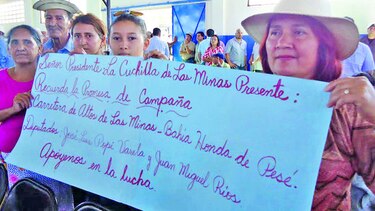 Señor Presidente La Cuchilla de Las Minas Presente:
Recuerda la Promesa de Campaña
Carretera de Altos de Las Minas - Bahia Honda de Pesé.
Diputados José Luis Popi Varela y Juan Miguel Rios
Apoyenos en la lucha.